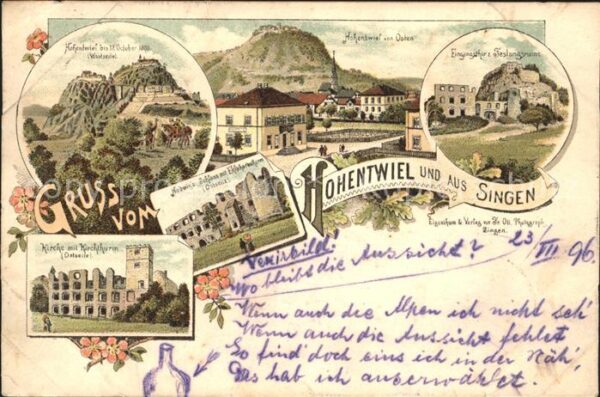 Hohentwiel bis 18. October 1800.
(Westseite)
Hohentwiel von Osten
Eingang z.
Festungsruine
GRUSS VOM HOHENTWIEL UND AUS SINGEN
Schloss mit
(Ostseite)
Kirche mit Kirchthurm
(Ostseite)
Eigenthum & Verlag von Fr. Ott. Photograph
Singen.
Vexirbild!
Wo bleibt die Aussicht? 23/VII 96
Wenn auch die Alpen ich nicht seh'
Wenn auch die Aussicht fehlet
So find' doch eins ich in der Näh',
Das hab ich auserwählet.